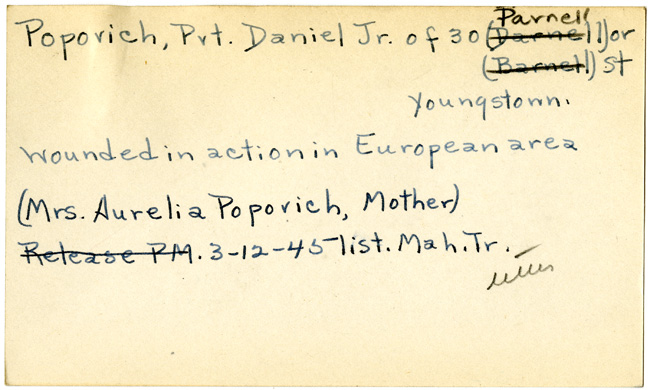 Parnell
Popovich, Pvt. Daniel Jr. of 30 (Darnell) or
(Barnel) St
Youngstown.
Wounded in action in European area
(Mrs. Aurelia Popovich, Mother)
Release PM. 3-12-45 list. Mah. Tr.